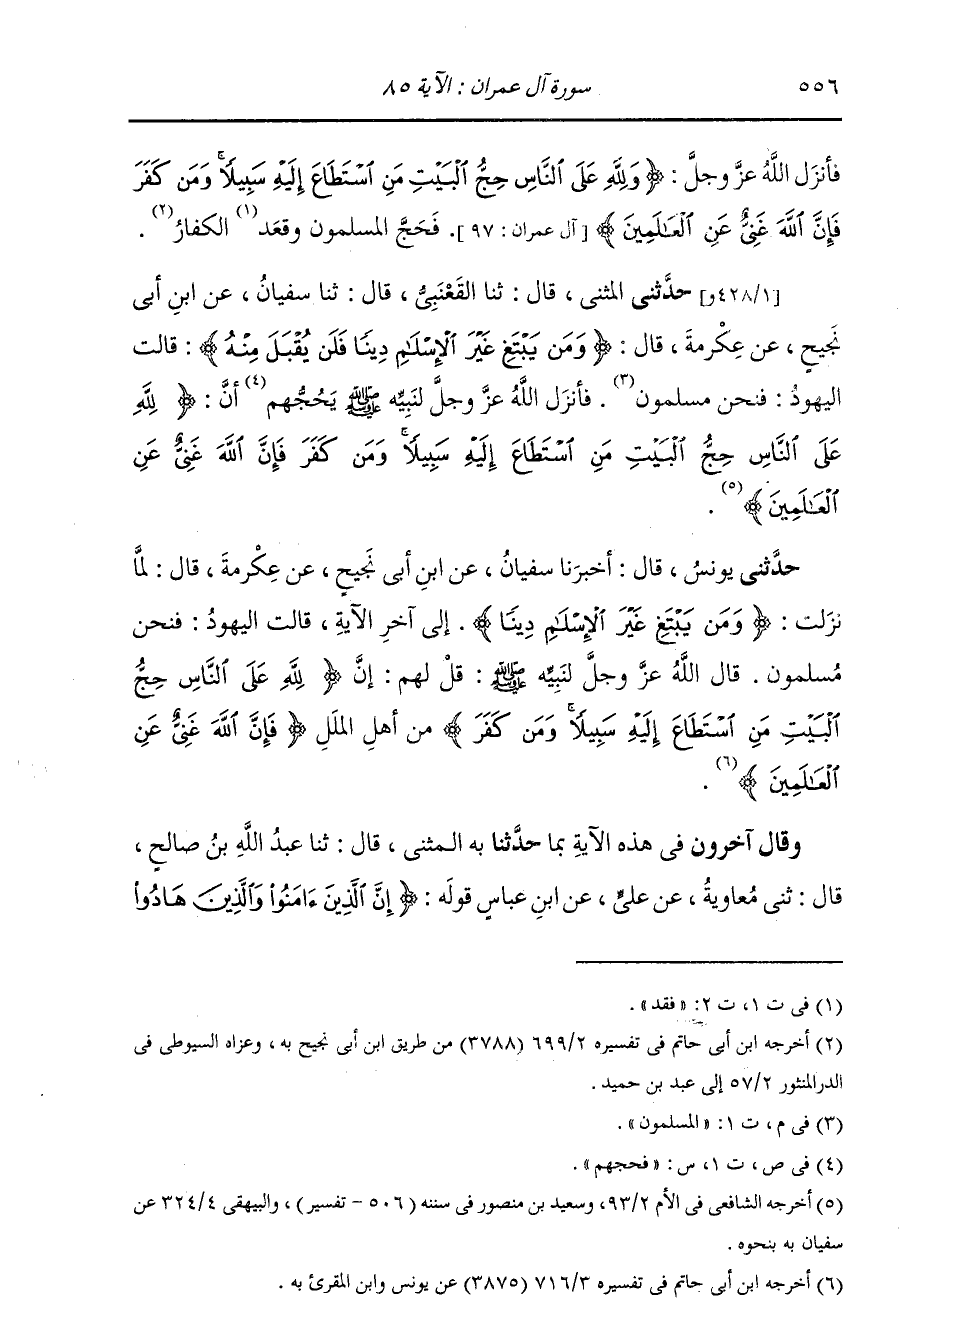 ٥٥٦ سورة آل عمران : الآية ٨٥
فأنزَل اللَّهُ عزَّ وجلَّ : ﴿ وَلِلَّهِ عَلَى ٱلنَّاسِ حِجُّ ٱلْبَيْتِ مَنِ ٱسْتَطَاعَ إِلَيْهِ سَبِيلًاۚ وَمَن كَفَرَ
فَإِنَّ ٱللَّهَ غَنِىٌّ عَنِ ٱلْعَـٰلَمِينَ ﴾ [ آل عمران : ٩٧ ]. فَحَجَّ المسلمون وقعَد(١) الكفارُ(٢) .
[٤٢٨/١و] حدَّثنى المثنى ، قال : ثنا القَعْنَبِىُّ ، قال : ثنا سفيانُ ، عن ابنِ أبى
نَجيحٍ ، عن عِكْرمةَ ، قال : ﴿ وَمَن يَبْتَغِ غَيْرَ ٱلْإِسْلَـٰمِ دِينًا فَلَن يُقْبَلَ مِنْهُ ﴾ : قالت
اليهودُ : فنحن مسلمون(٣) . فأنزَل اللَّهُ عزَّ وجلَّ لنَبِيِّه ﷺ يَحُجُّهم(٤) أنَّ : ﴿ لِلَّهِ
عَلَى ٱلنَّاسِ حِجُّ ٱلْبَيْتِ مَنِ ٱسْتَطَاعَ إِلَيْهِ سَبِيلًاۚ وَمَن كَفَرَ فَإِنَّ ٱللَّهَ غَنِىٌّ عَنِ
ٱلْعَـٰلَمِينَ ﴾(٥) .
حدَّثنى يونسُ ، قال : أخبرَنا سفيانُ ، عن ابنِ أبى نَجيحٍ ، عن عِكْرمةَ ، قال : لمَّا
نزَلت : ﴿ وَمَن يَبْتَغِ غَيْرَ ٱلْإِسْلَـٰمِ دِينًا ﴾ . إلى آخرِ الآيةِ ، قالت اليهودُ : فنحن
مُسلمون . قال اللَّهُ عزَّ وجلَّ لنَبِيِّه ﷺ : قلْ لهم : إنَّ ﴿ لِلَّهِ عَلَى ٱلنَّاسِ حِجُّ
ٱلْبَيْتِ مَنِ ٱسْتَطَاعَ إِلَيْهِ سَبِيلًاۚ وَمَن كَفَرَ ﴾ من أهلِ المللِ ﴿ فَإِنَّ ٱللَّهَ غَنِىٌّ عَنِ
ٱلْعَـٰلَمِينَ ﴾(٦) .
وقال آخرون فى هذه الآيةِ بما حدَّثنا به المثنى ، قال : ثنا عبدُ اللَّهِ بنُ صالحٍ ،
قال : ثنى مُعاويةُ ، عن علىٍّ ، عن ابنِ عباسٍ قولَه : ﴿ إِنَّ ٱلَّذِينَ ءَامَنُوا۟ وَٱلَّذِينَ هَادُوا۟
(١) فى ت ١، ت ٢: « فقد » .
(٢) أخرجه ابن أبى حاتم فى تفسيره ٦٩٩/٢ (٣٧٨٨) من طريق ابن أبى نجيح به ، وعزاه السيوطى فى
الدرالمنثور ٥٧/٢ إلى عبد بن حميد .
(٣) فى م ، ت ١: « المسلمون » .
(٤) فى ص ، ت ١، س : « فحجهم » .
(٥) أخرجه الشافعى فى الأم ٩٣/٢، وسعيد بن منصور فى سننه ( ٥٠٦ - تفسير ) ، والبيهقى ٣٢٤/٤ عن
سفيان به بنحوه .
(٦) أخرجه ابن أبى حاتم فى تفسيره ٧١٦/٣ (٣٨٧٥) عن يونس وابن المقرئ به .